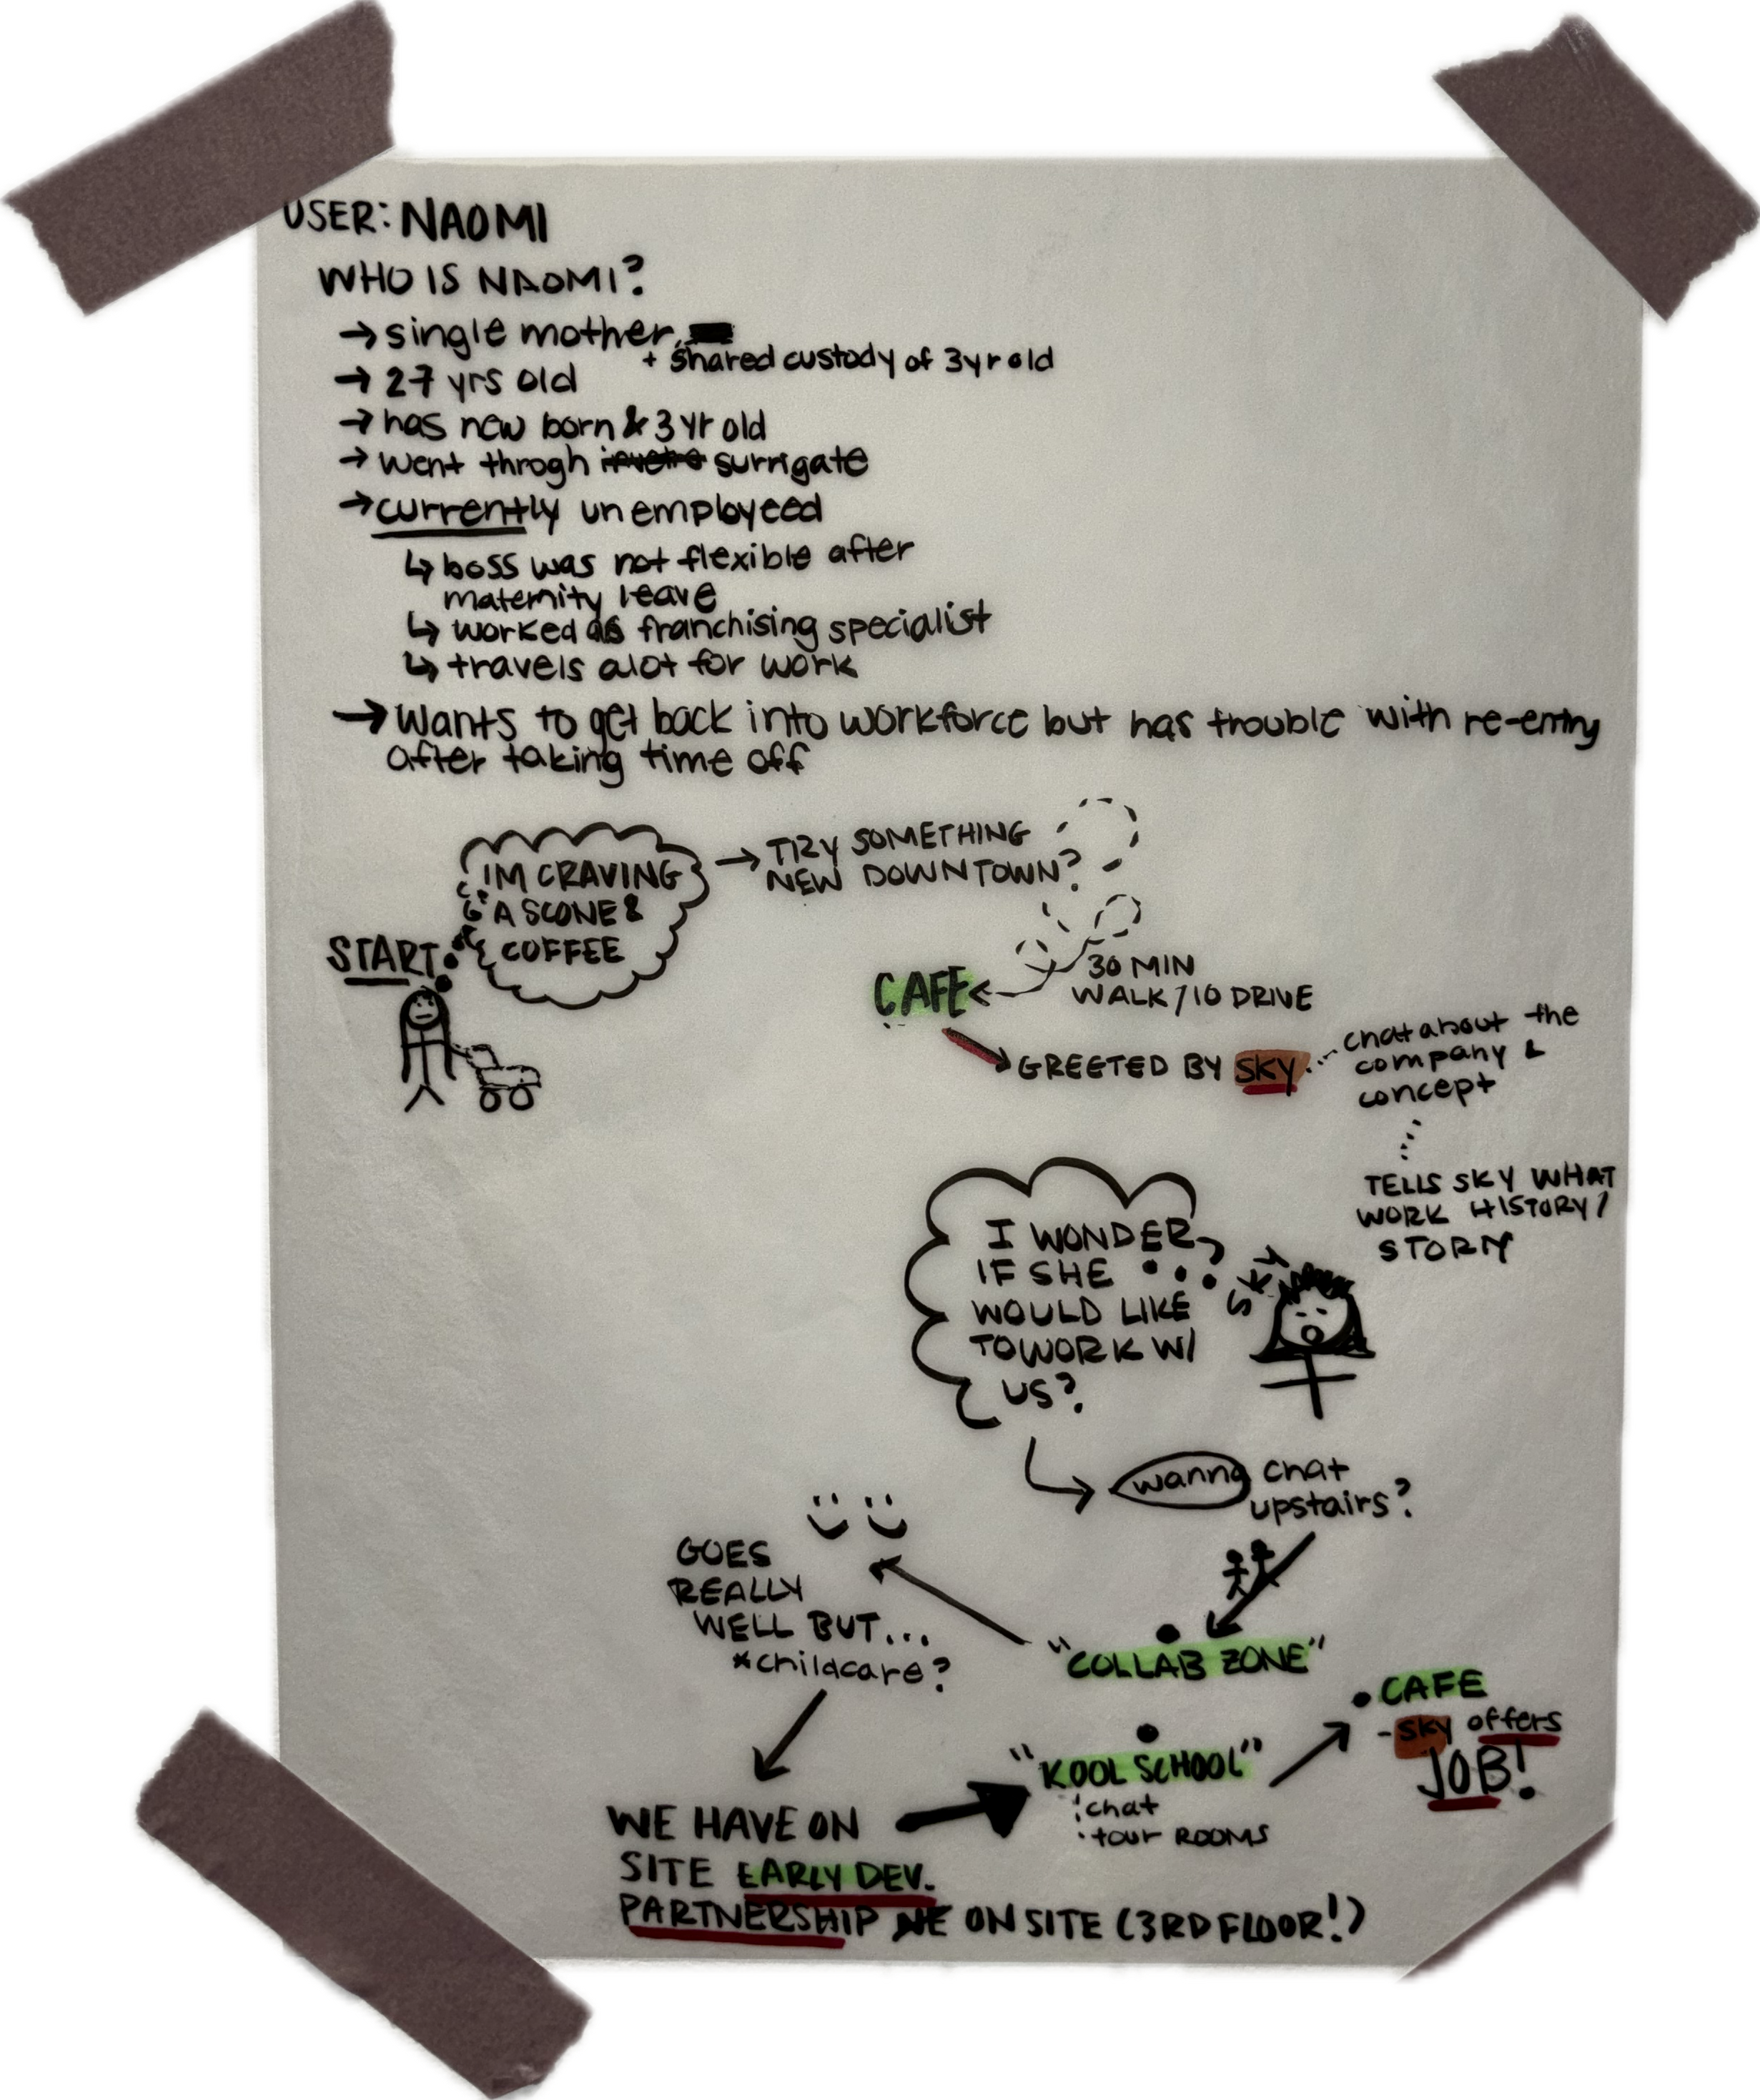 USER: NAOMI
WHO IS NAOMI?
→ single mother,
+ shared custody of 3yr old
→ 27 yrs old
→ has new born & 3 yr old
→ went throgh surrigate
→ currently unemployeed
↳ boss was not flexible after
maternity leave
↳ worked as franchising specialist
↳ travels alot for work
→ wants to get back into workforce but has trouble with re-entry
after taking time off
START
IM CRAVING
A SCONE &
COFFEE
→ TRY SOMETHING
NEW DOWNTOWN?
30 MIN
WALK / 10 DRIVE
CAFE
GREETED BY SKY
chat about the
company &
concept
TELLS SKY WHAT
WORK HISTORY/
STORY
I WONDER
IF SHE
WOULD LIKE
TO WORK W/
US?
SKY
wanna chat
upstairs?
"COLLAB ZONE"
GOES
REALLY
WELL BUT...
*childcare?
WE HAVE ON
SITE EARLY DEV.
PARTNERSHIP ON SITE (3RD FLOOR!)
"KOOL SCHOOL"
chat
tour ROOMS
• CAFE
- SKY offers
JOB!